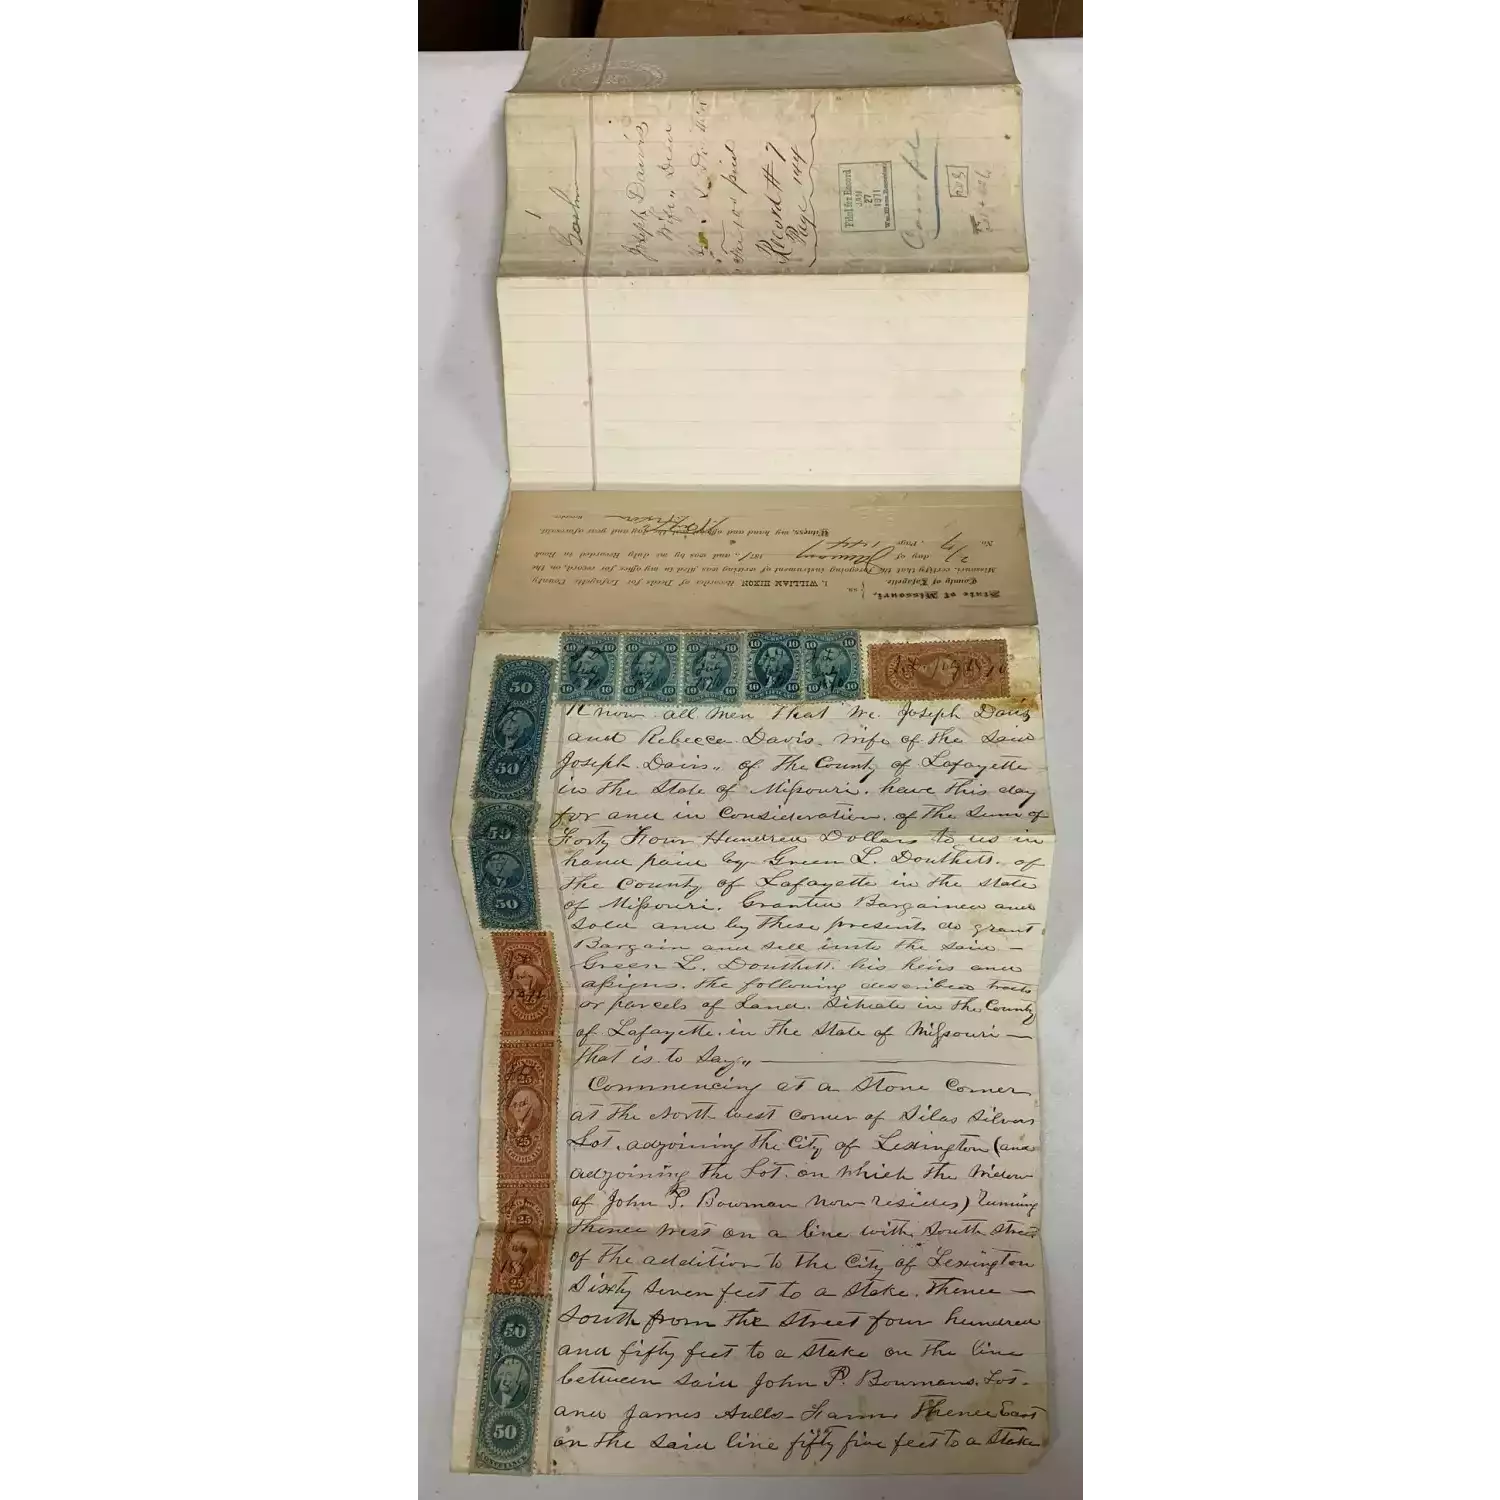 Joseph Davis
Wife Deed
Fee 1 00 pied
Record # 7
Page 144
Filed for Record
JAN
27
1871
Wm. Hixon, Recorder
State of Missouri,
County of Lafayette } ss.
I, WILLIAM HIXON Recorder of Deeds for Lafayette County
Missouri, certify that the foregoing instrument of writing was filed in my office, for record, on the
27 day of January 1871, and was by me duly Recorded in Book
No. 7, Page 144
Witness, my hand and official the day and year aforesaid.
Wm Hixon
Recorder.
10 10 10 10 10 10 10 10 10 10
10 10 10 10 10 10 10 10 10 10
50
50
50
50
25
25
25
25
50
50
CONVEYANCE
Know all Men that We Joseph Davis
and Rebecca Davis. Wife of the Said
Joseph Davis,, of the County of Lafayette
in the State of Missouri. have this day
for and in Consideration. of the Sum of
Forty Four Hundred Dollars to us in
hand paid by Green L. Douthett. of
the County of Lafayette in the State
of Missouri. Granted Bargained and
Sold and by these presents do grant
Bargain and sell unto the said —
Green L. Douthett. his heirs and
assigns. the following described tracts
or parcels of Land. Situate in the County
of Lafayette. in the State of Missouri —
that is to Say,, —
Commencing at a Stone Corner
at the North West Corner of Silas Silvers
Lot. adjoining the City of Lexington (and
adjoining the Lot. on which the Widow
of John P. Bowman now resides) running
thence West on a line with South Street
of the addition to the City of Lexington
Sixty Seven feet to a Stake. thence —
South from the Street four hundred
and fifty feet to a Stake on the line
between said John P. Bowmans. Lot.
and James Aulls — Farm thence East
on the said line fifty five feet to a Stake